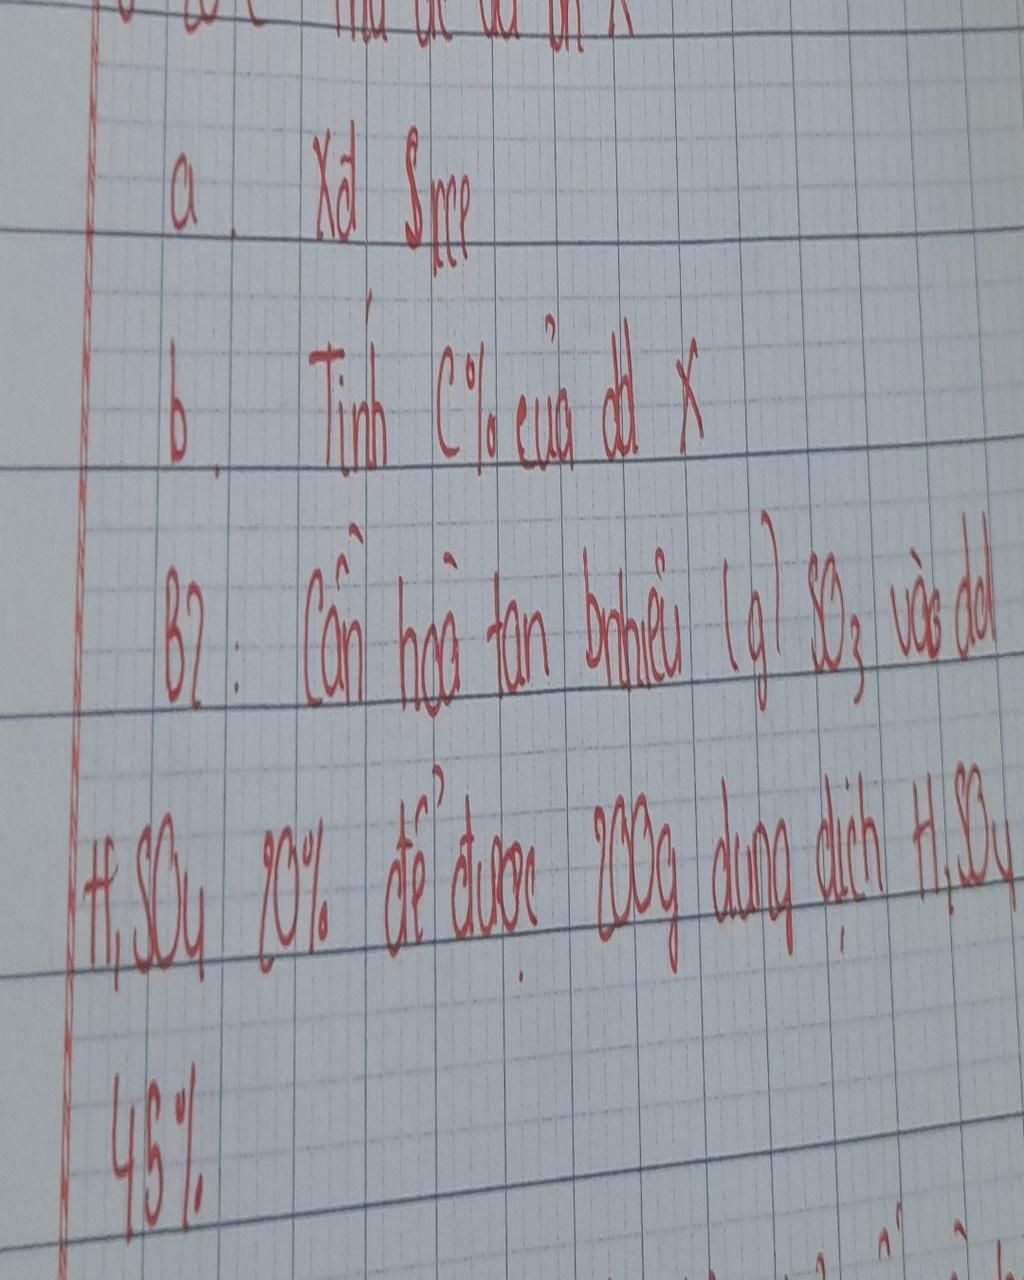 a. Xđ Smr
b. Tính C% của dd X
B2: Cần hoà tan bnhiêu (g) SO3 vào dd
H2SO4 20% để được 200g dung dịch H2SO4
45%